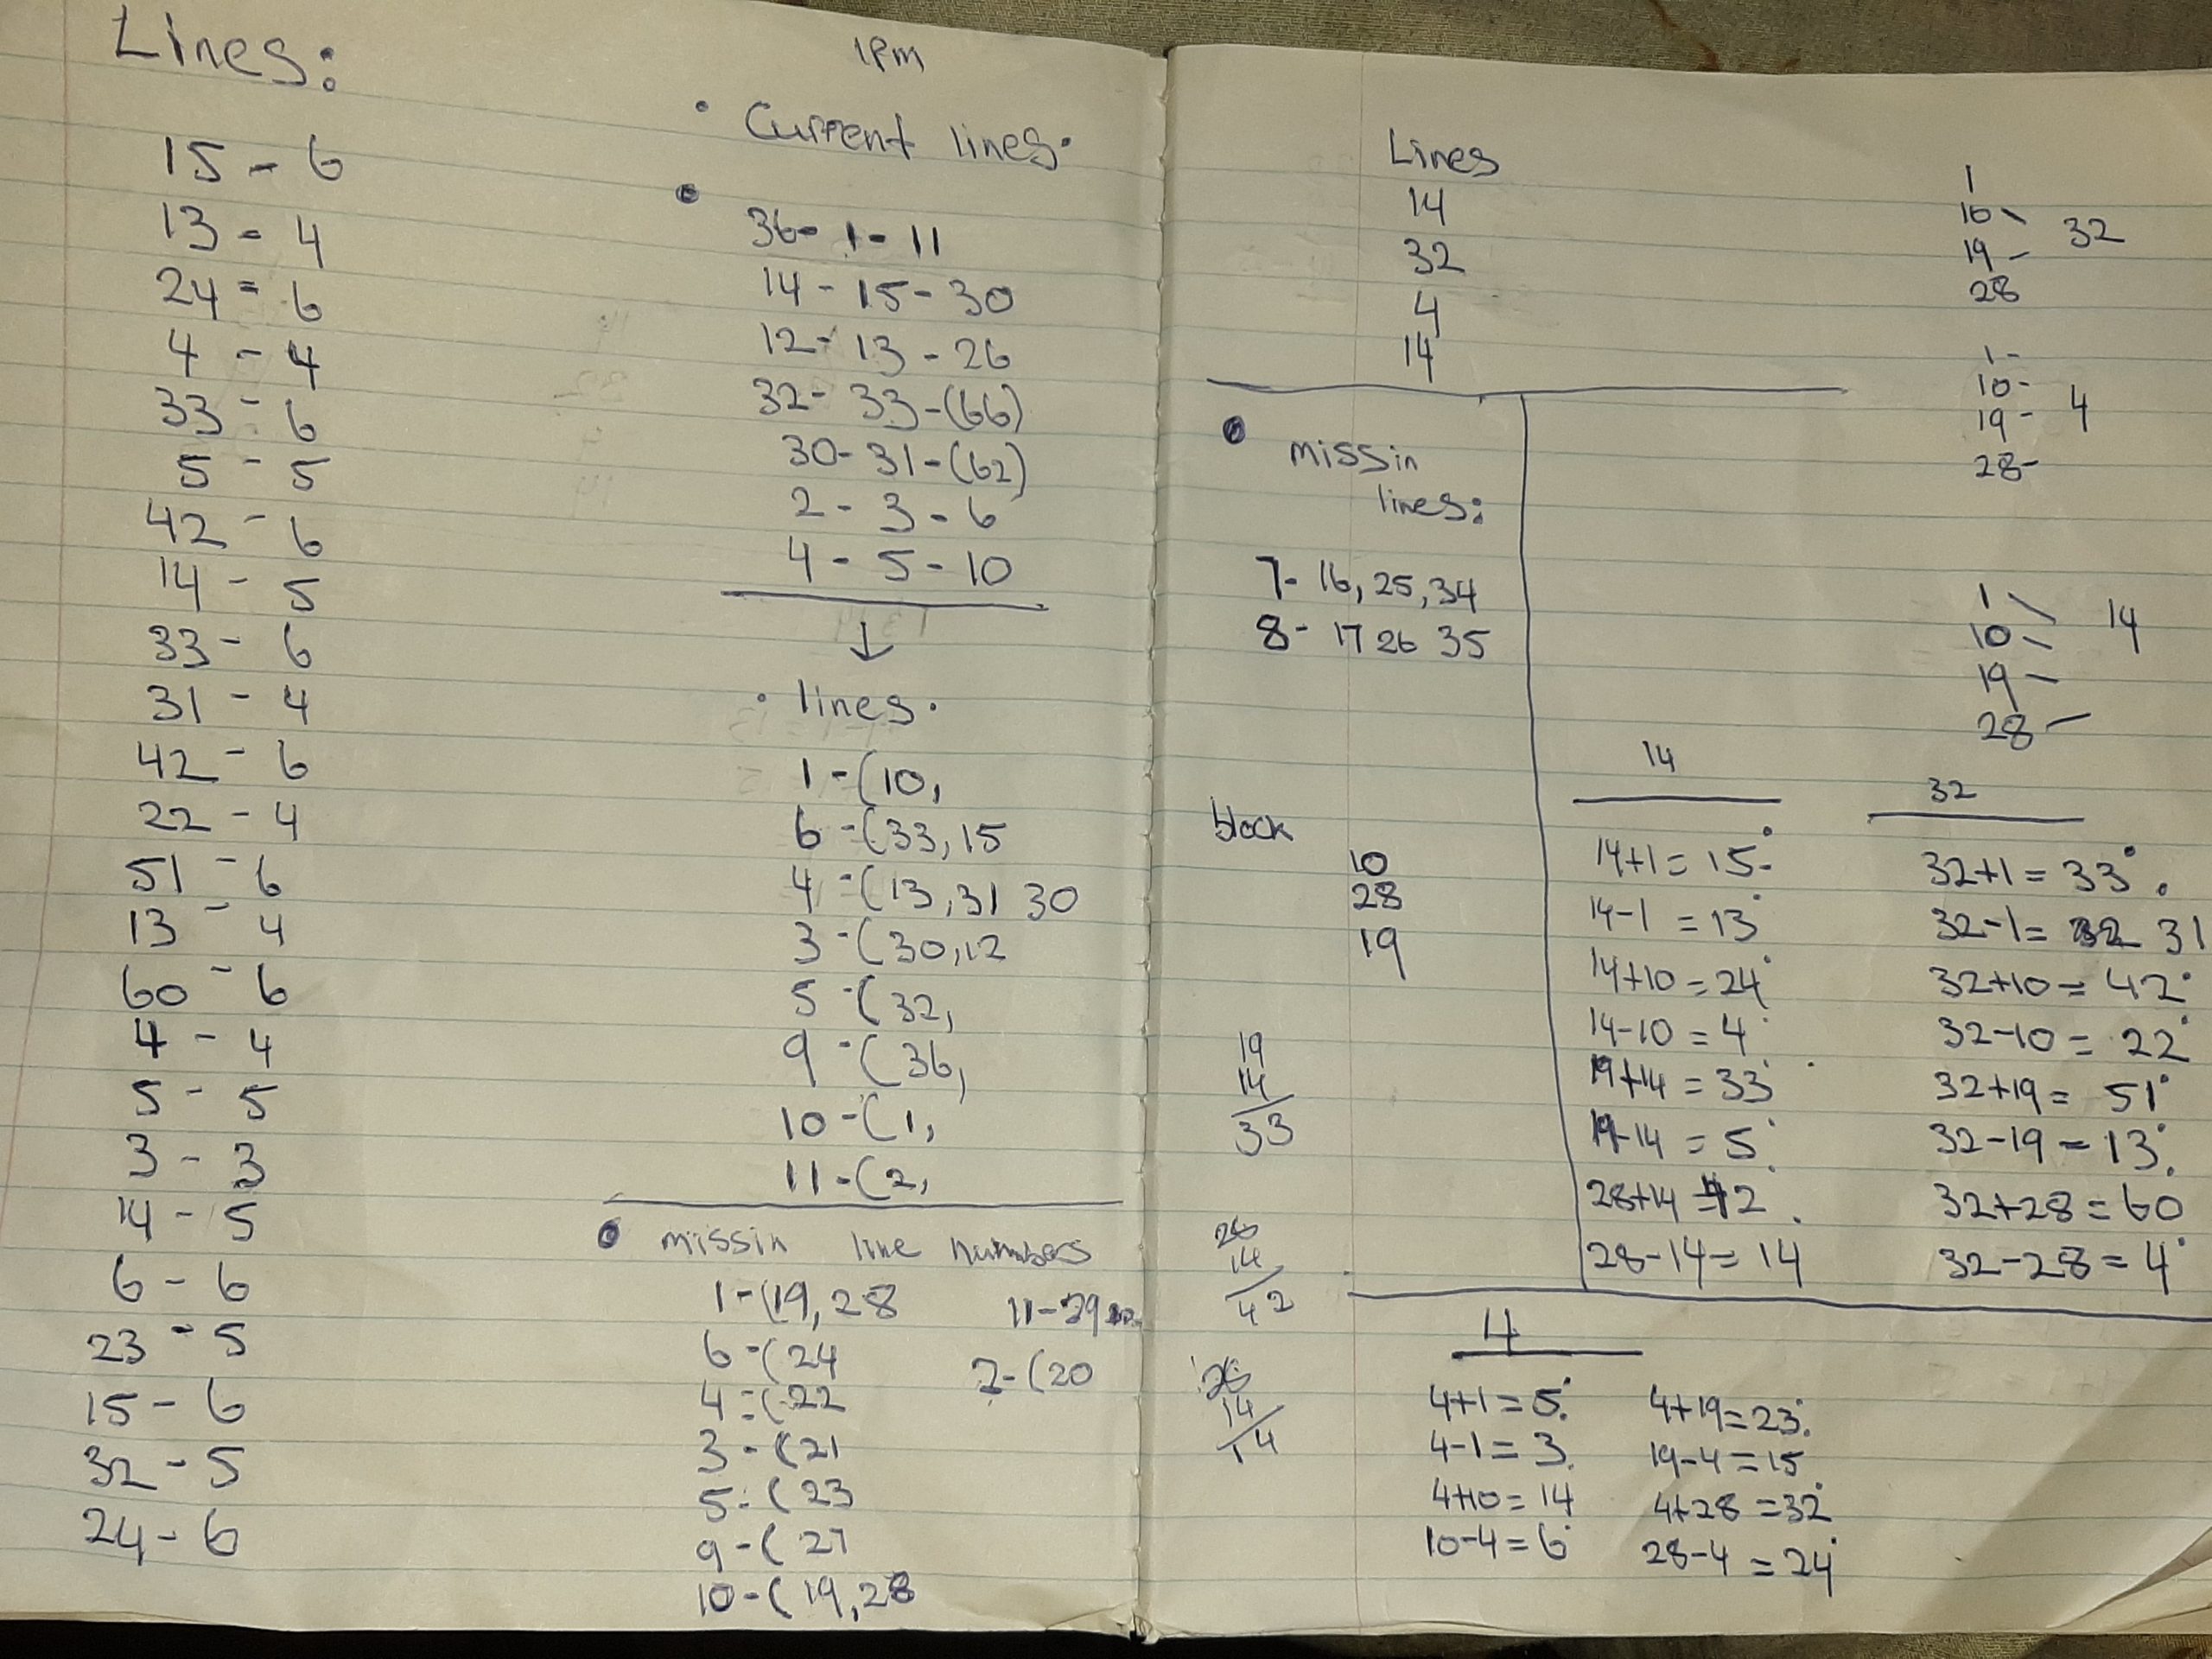 Lines:
15 - 6
13 - 4
24 = 6
4 - 4
33 - 6
5 - 5
42 - 6
14 - 5
33 - 6
31 - 4
42 - 6
22 - 4
51 - 6
13 - 4
60 - 6
4 - 4
5 - 5
3 - 3
14 - 5
6 - 6
23 - 5
15 - 6
32 - 5
24 - 6
1PM
• Current lines.
• 36 - 1 - 11
14 - 15 - 30
12 - 13 - 26
32 - 33 - (66)
30 - 31 - (62)
2 - 3 - 6
4 - 5 - 10
↓
• lines.
1 - (10,
6 - (33, 15
4 - (13, 31 30
3 - (30, 12
5 - (32,
9 - (36,
10 - (1,
11 - (2,
• missin line numbers
1 - (19, 28 11 - 29
6 - (24 2 - (20
4 - (22
3 - (21
5 - (23
9 - (27
10 - (19, 28
Lines
14
32
4
14
• missin
lines:
7 - 16, 25, 34
8 - 17 26 35
block
10
28
19
19
14
33
14
42
14
14
1
10
19 32
28
1 -
10 -
19 - 4
28 -
1
10 - 14
19 -
28 -
14
14+1 = 15
14-1 = 13
14+10 = 24
14-10 = 4
19+14 = 33
19-14 = 5
28+14 = 42
28-14 = 14
32
32+1 = 33
32-1 = 32 31
32+10 = 42
32-10 = 22
32+19 = 51
32-19 = 13
32+28 = 60
32-28 = 4
4
4+1 = 5 4+19 = 23
4-1 = 3 19-4 = 15
4+10 = 14 4+28 = 32
10-4 = 6 28-4 = 24